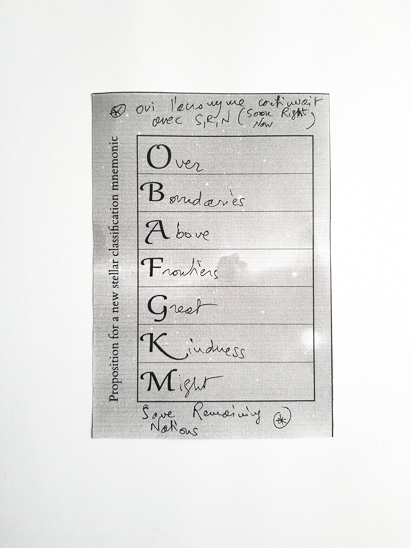 ⊛ oui l'acronyme continuait
avec S, R, N (Soon Right
Now)
Proposition for a new stellar classification mnemonic
Over
Boundaries
Above
Frontiers
Great
Kindness
Might
Save Remaining
Nations ⊛